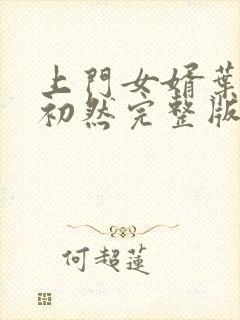 上門女婿葉
初然完整版
何超蓮